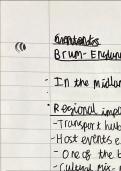 Brum - England
- In the midlan
• Regional impo
- Transport hub
- Host events e
- One of the b
- Cultural mix - m